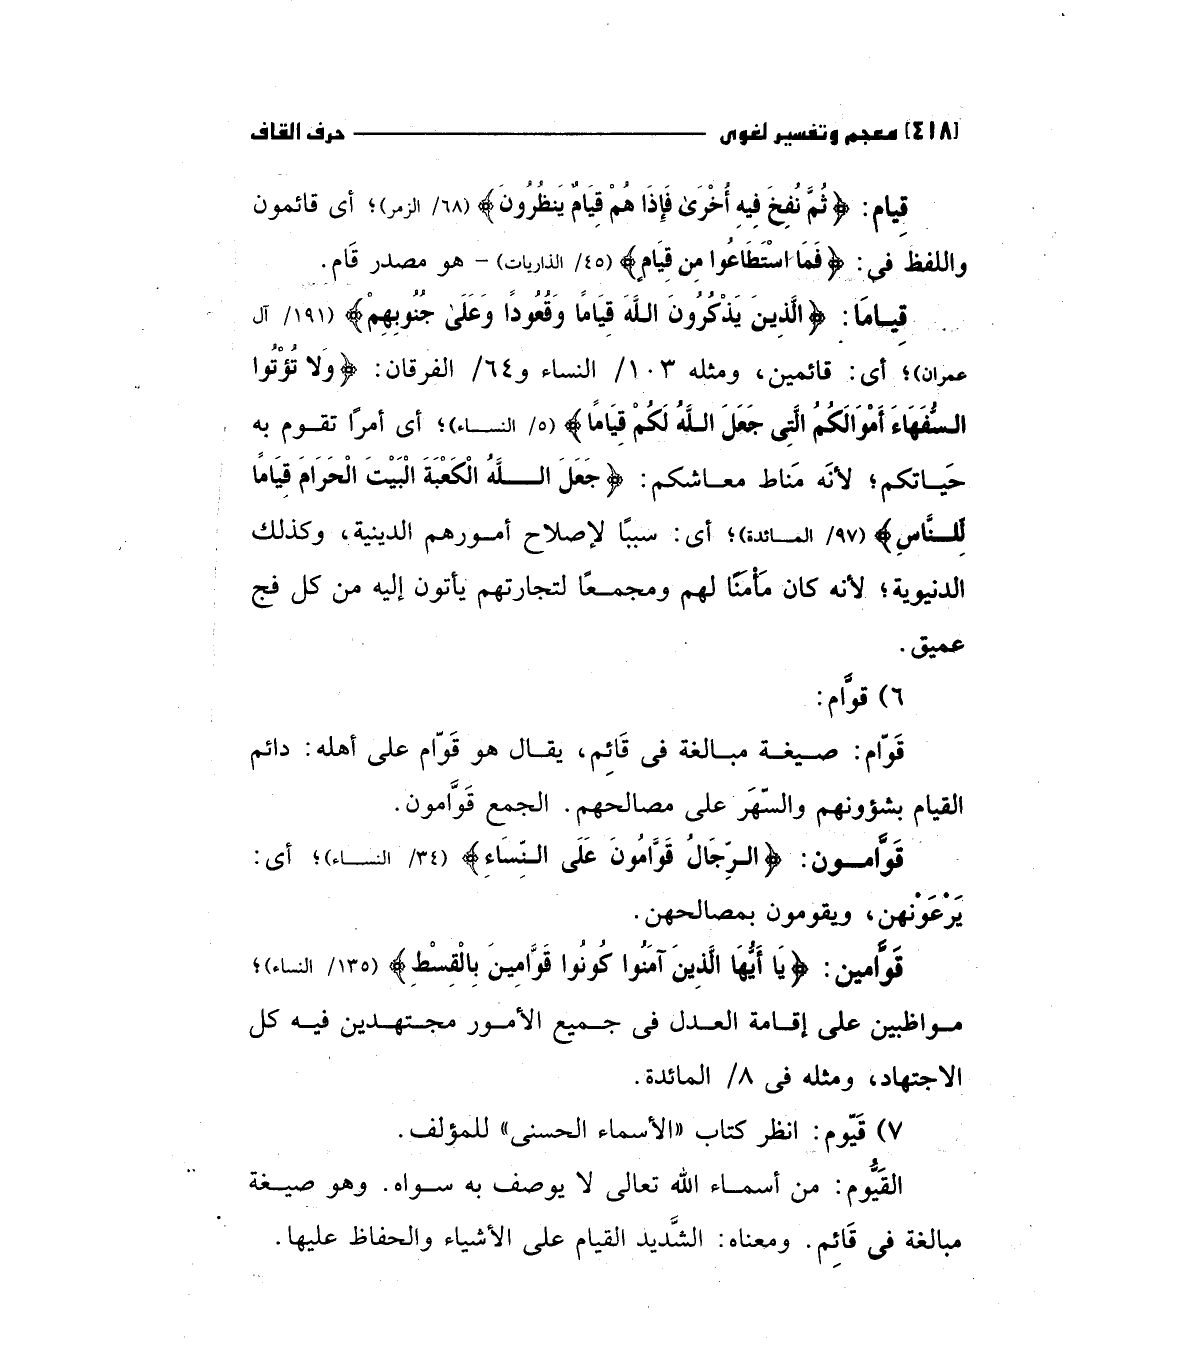 [٤١٨] معجم وتفسير لغوى ـــــــــ حرف القاف
قِيام: ﴿ثُمَّ نُفِخَ فِيهِ أُخْرَىٰ فَإِذَا هُمْ قِيَامٌ يَنظُرُونَ﴾ (٦٨/ الزمر)؛ أى قائمون
واللفظ فى: ﴿فَمَا اسْتَطَاعُوا مِن قِيَامٍ﴾ (٤٥/ الذاريات) – هو مصدر قَام.
قيـامًا: ﴿الَّذِينَ يَذْكُرُونَ اللَّهَ قِيَامًا وَقُعُودًا وَعَلَىٰ جُنُوبِهِمْ﴾ (١٩١/ آل
عمران)؛ أى: قائمين، ومثله ١٠٣/ النساء و٦٤/ الفرقان: ﴿وَلا تُؤْتُوا
السُّفَهَاءَ أَمْوَالَكُمُ الَّتِى جَعَلَ اللَّهُ لَكُمْ قِيَامًا﴾ (٥/ النساء)؛ أى أمرًا تقوم به
حَياتكم؛ لأنَه مَناط معاشكم: ﴿جَعَلَ اللَّهُ الْكَعْبَةَ الْبَيْتَ الْحَرَامَ قِيَامًا
لِّلنَّاسِ﴾ (٩٧/ المائدة)؛ أى: سببًا لإصلاح أمورهم الدينية، وكذلك
الدنيوية؛ لأنه كان مَأْمَنًا لهم ومجمعًا لتجارتهم يأتون إليه من كل فج
عميق.
٦) قوَّام:
قَوّام: صيغة مبالغة فى قَائِم، يقال هو قَوّام على أهله: دائم
القيام بشؤونهم والسّهَر على مصالحهم. الجمع قَوَّامون.
قَوَّامون: ﴿الرِّجَالُ قَوَّامُونَ عَلَى النِّسَاءِ﴾ (٣٤/ النساء)؛ أى:
يَرْعَوْنهن، ويقومون بمصالحهن.
قَوَّامين: ﴿يَا أَيُّهَا الَّذِينَ آمَنُوا كُونُوا قَوَّامِينَ بِالْقِسْطِ﴾ (١٣٥/ النساء)؛
مواظبين على إقامة العدل فى جميع الأمور مجتهدين فيه كل
الاجتهاد، ومثله فى ٨/ المائدة.
٧) قَيّوم: انظر كتاب «الأسماء الحسنى» للمؤلف.
القَيُّوم: من أسماء الله تعالى لا يوصف به سواه. وهو صيغة
مبالغة فى قَائِم. ومعناه: الشَّديد القيام على الأشياء والحفاظ عليها.